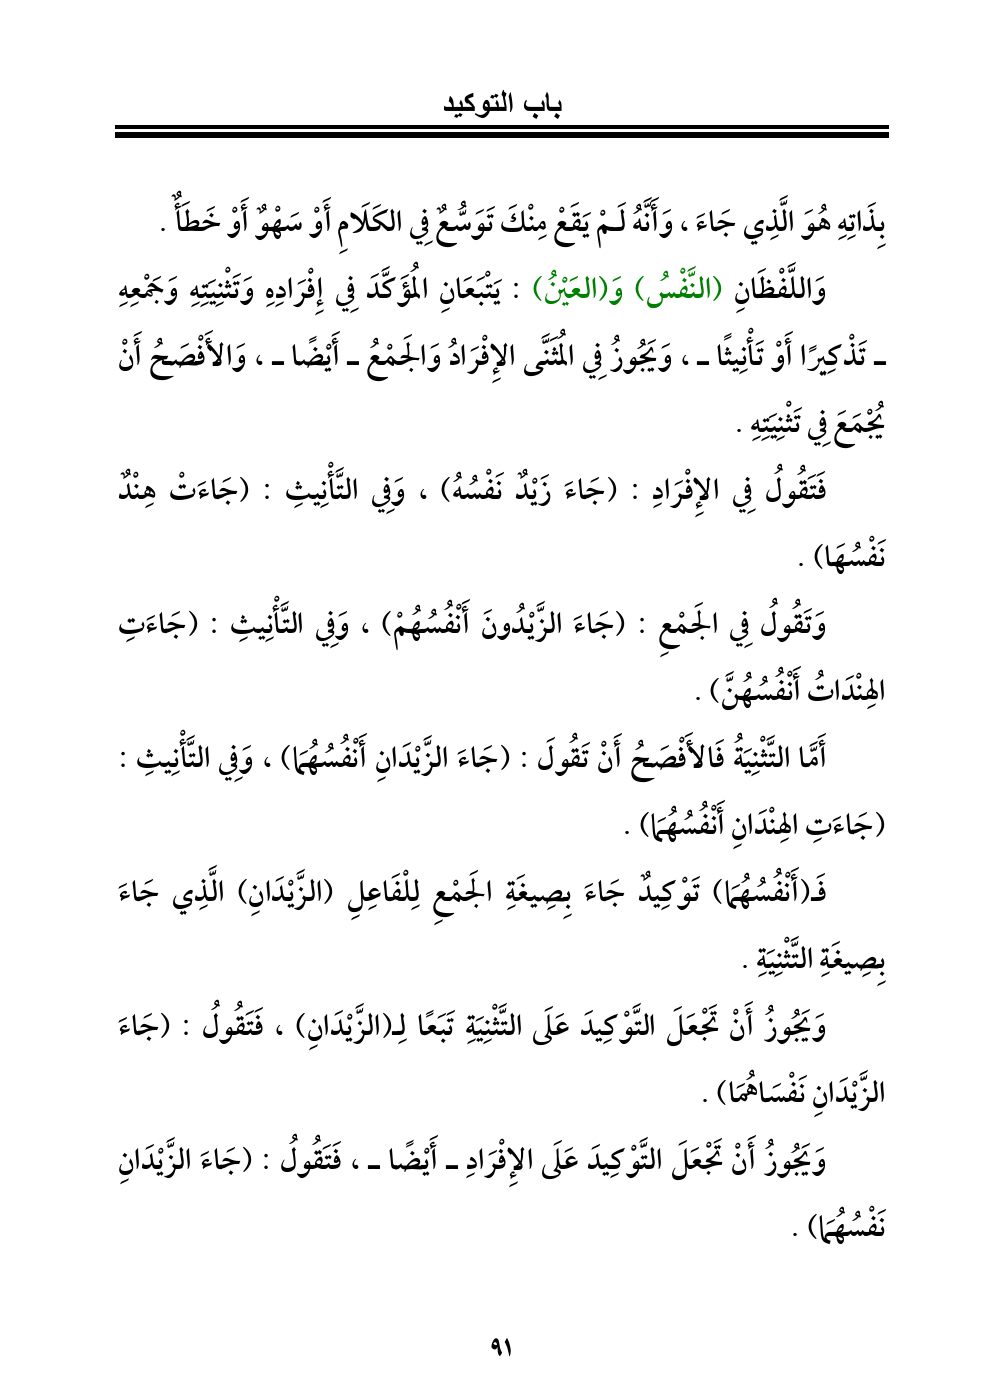 باب التوكيد
بِذَاتِهِ هُوَ الَّذِي جَاءَ ، وَأَنَّهُ لَـمْ يَقَعْ مِنْكَ تَوَسُّعٌ فِي الكَلَامِ أَوْ سَهْوٌ أَوْ خَطَأٌ .
وَاللَّفْظَانِ (النَّفْسُ) وَ(العَيْنُ) : يَتْبَعَانِ الْمُؤَكَّدَ فِي إِفْرَادِهِ وَتَثْنِيَتِهِ وَجَمْعِهِ
ـ تَذْكِيرًا أَوْ تَأْنِيثًا ـ ، وَيَجُوزُ فِي الْمُثَنَّى الإِفْرَادُ وَالجَمْعُ ـ أَيْضًا ـ ، وَالأَفْصَحُ أَنْ
يُجْمَعَ فِي تَثْنِيَتِهِ .
فَتَقُولُ فِي الإِفْرَادِ : (جَاءَ زَيْدٌ نَفْسُهُ) ، وَفِي التَّأْنِيثِ : (جَاءَتْ هِنْدٌ
نَفْسُهَا) .
وَتَقُولُ فِي الجَمْعِ : (جَاءَ الزَّيْدُونَ أَنْفُسُهُمْ) ، وَفِي التَّأْنِيثِ : (جَاءَتِ
الهِنْدَاتُ أَنْفُسُهُنَّ) .
أَمَّا التَّثْنِيَةُ فَالأَفْصَحُ أَنْ تَقُولَ : (جَاءَ الزَّيْدَانِ أَنْفُسُهُمَا) ، وَفِي التَّأْنِيثِ :
(جَاءَتِ الهِنْدَانِ أَنْفُسُهُمَا) .
فَـ(أَنْفُسُهُمَا) تَوْكِيدٌ جَاءَ بِصِيغَةِ الجَمْعِ لِلْفَاعِلِ (الزَّيْدَانِ) الَّذِي جَاءَ
بِصِيغَةِ التَّثْنِيَةِ .
وَيَجُوزُ أَنْ تَجْعَلَ التَّوْكِيدَ عَلَى التَّثْنِيَةِ تَبَعًا لِـ(الزَّيْدَانِ) ، فَتَقُولُ : (جَاءَ
الزَّيْدَانِ نَفْسَاهُمَا) .
وَيَجُوزُ أَنْ تَجْعَلَ التَّوْكِيدَ عَلَى الإِفْرَادِ ـ أَيْضًا ـ ، فَتَقُولُ : (جَاءَ الزَّيْدَانِ
نَفْسُهُمَا) .
٩١